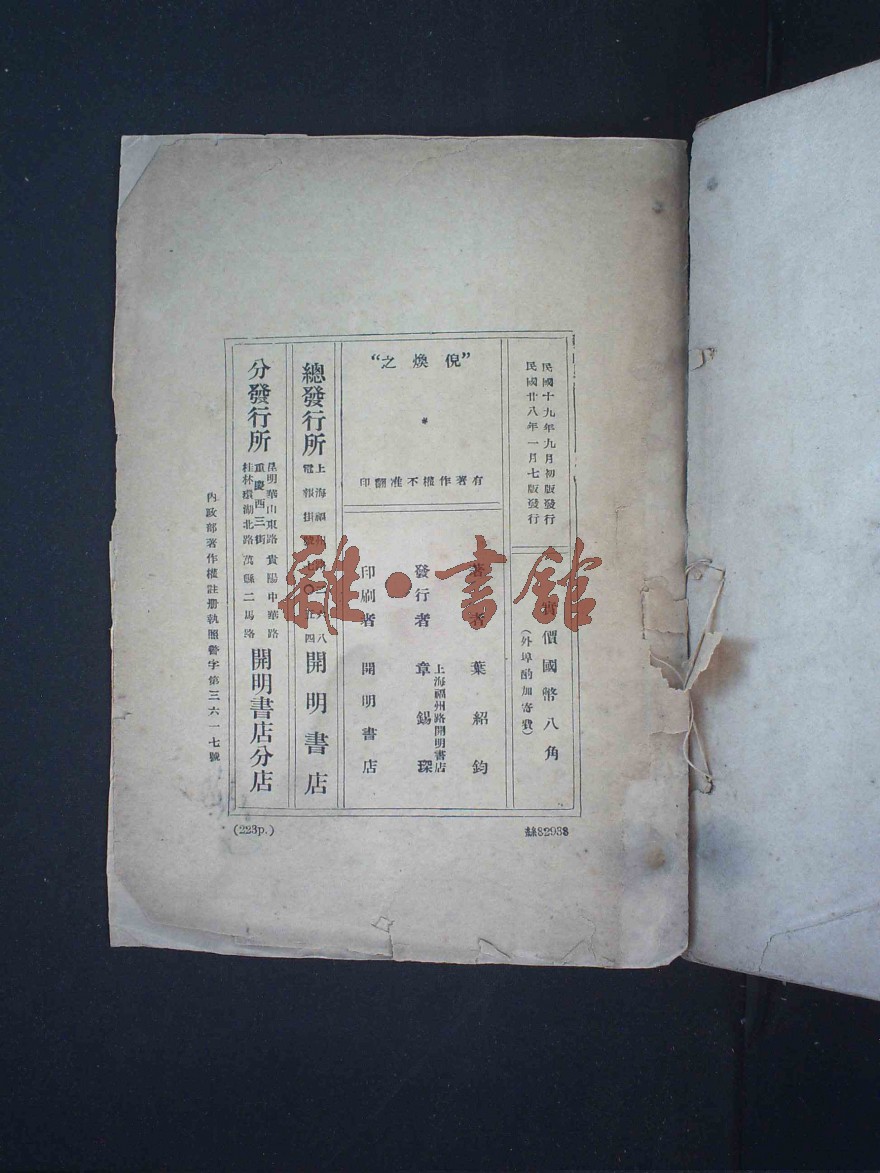 民國十九年九月初版發行
民國廿八年一月七版發行
實價國幣八角
(外埠酌加寄費)
"倪煥之"
有著作權不准翻印
著者 葉紹鈞
發行者 章錫琛
上海福州路開明書店
印刷者 開明書店
總發行所
上海福州路
電報掛號七〇五四
開明書店
分發行所
昆明華山東路 貴陽中華路
重慶西三街
桂林環湖北路 萬縣二馬路
開明書店分店
內政部著作權註冊執照警字第三六一七號
(223p.)
82938
雜·書館